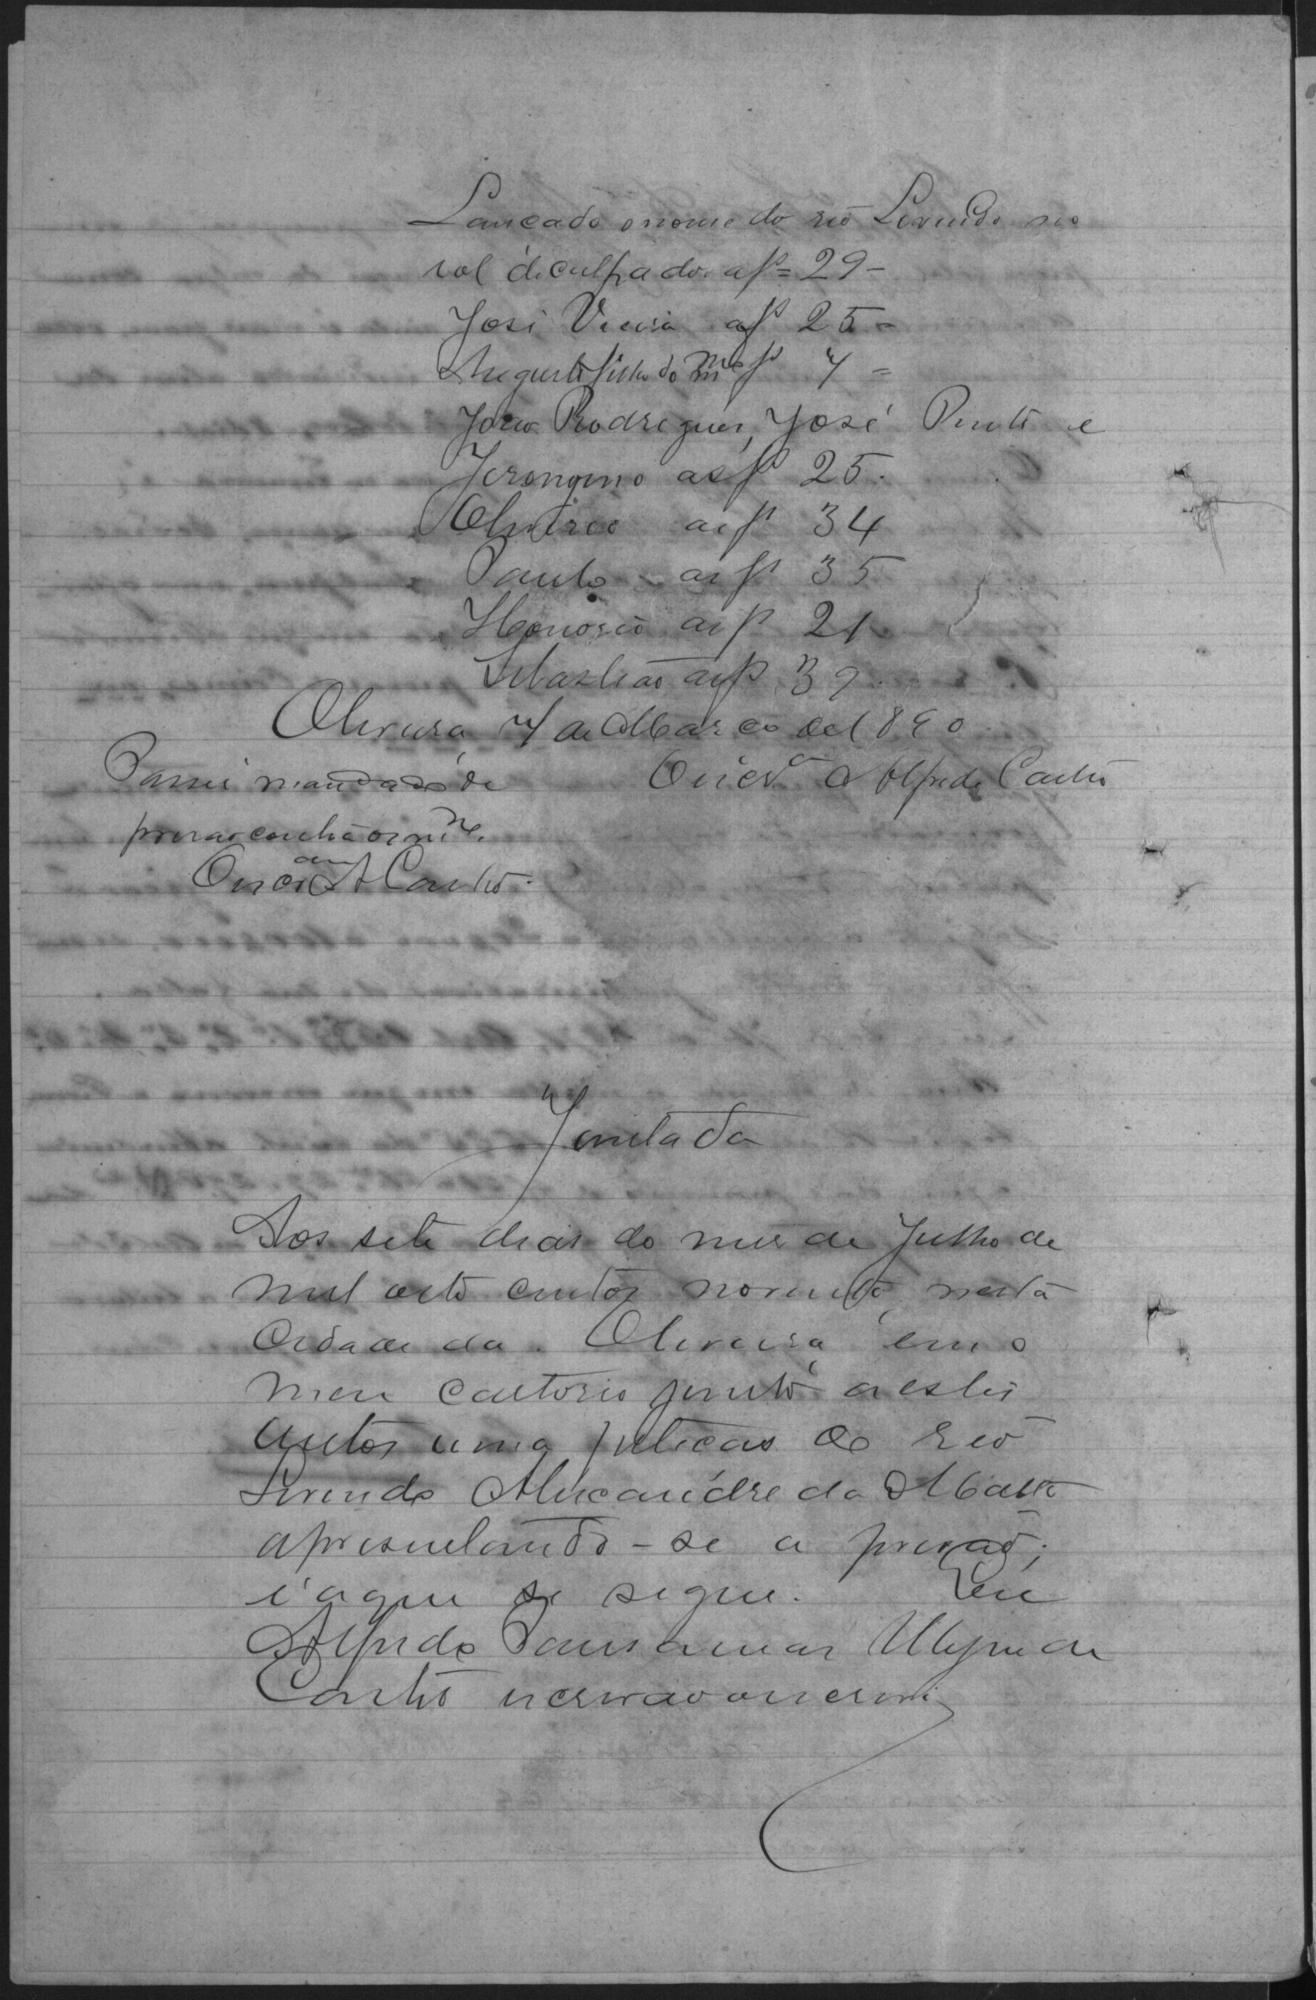 Lançado o nome do réo Lucindo no
rol de culpados a fs = 29 -
José Vieira a fs 25 -
Augusto filho do mmo fs 7 =
João Rodrigues, José Pinto e
Jeronymo as fs 25.
Olimpio as fs 34
Paulo - as fs 35
Honorio as fs 21
Sebastião as fs 39.
Oliveira 7 de Março de 1890
O escram Alfredo Castro
Passei mandado de
prisão contra os
O escram A Castro.
Juntada
Aos sete dias do mes de Julho de
mil oito centos noventa, nesta
Cidade da Oliveira em o
meu cartorio junto a estes
autos uma petição do réo
Lucindo Alexandre da Matta
apresentando-se a prisão;
é a que se segue. Eu
Alfredo Ulysses de
Castro escrivão o escrevi